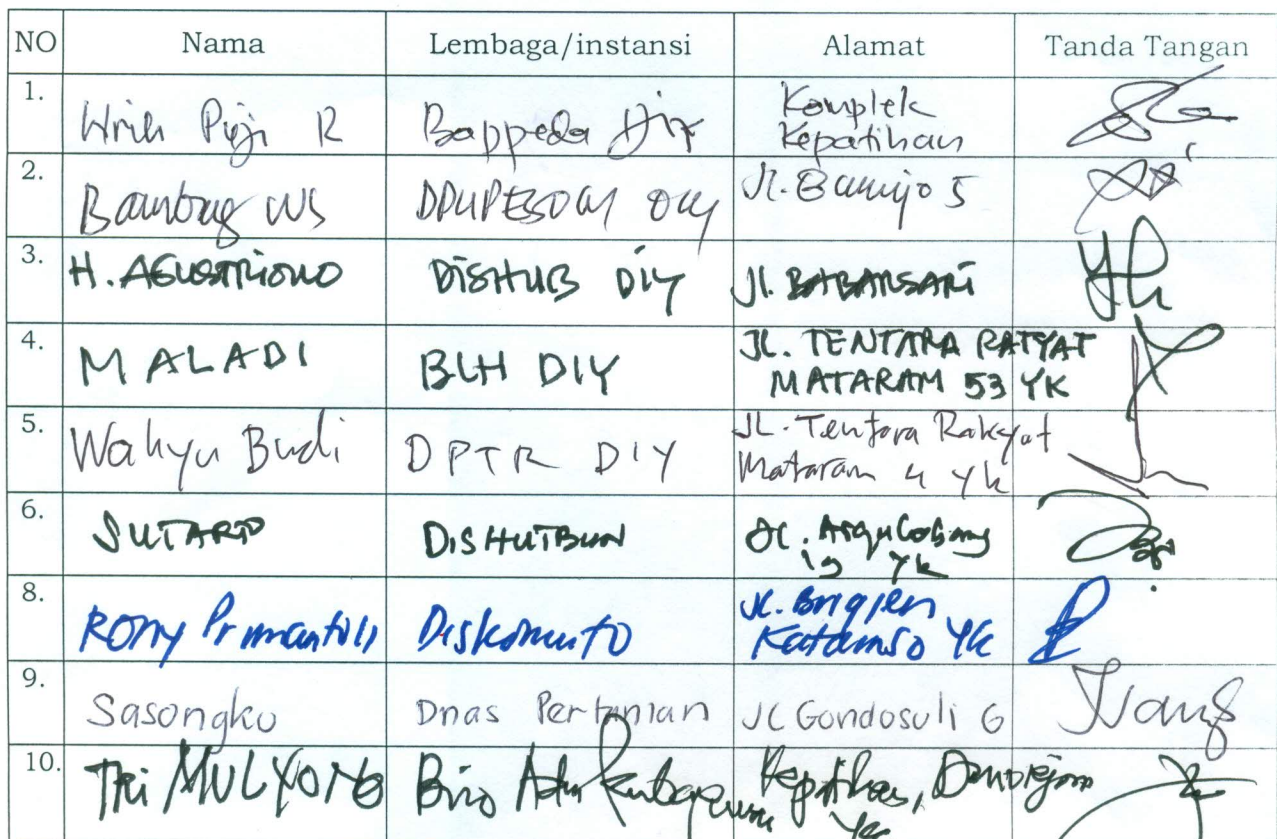 NO Nama Lembaga/instansi Alamat Tanda Tangan
1. Puji R Bappeda DIY Komplek
Kepatihan
2. Bambang WS DPUPESDM DIY Jl. Bumijo 5
3. H. AGUSTRIONO DISHUB DIY Jl. BABARSARI
4. MALADI BLH DIY JL. TENTARA RATYAT
MATARAM 53 YK
5. Wahyu Budi DPTR DIY JL. Tentara Rakyat
Mataram 4 Yk
6. SUTARTO DISHUTBUN Jl. Argulobang
19 YK
8. RONY Primantoli Diskominfo Jl. Brigjen
Katamso Yk
9. Sasongko Dnas Pertanian Jl Gondosuli 6
10. TRI MULYONO Biro Adm Kepatihan, Danurejan
YK